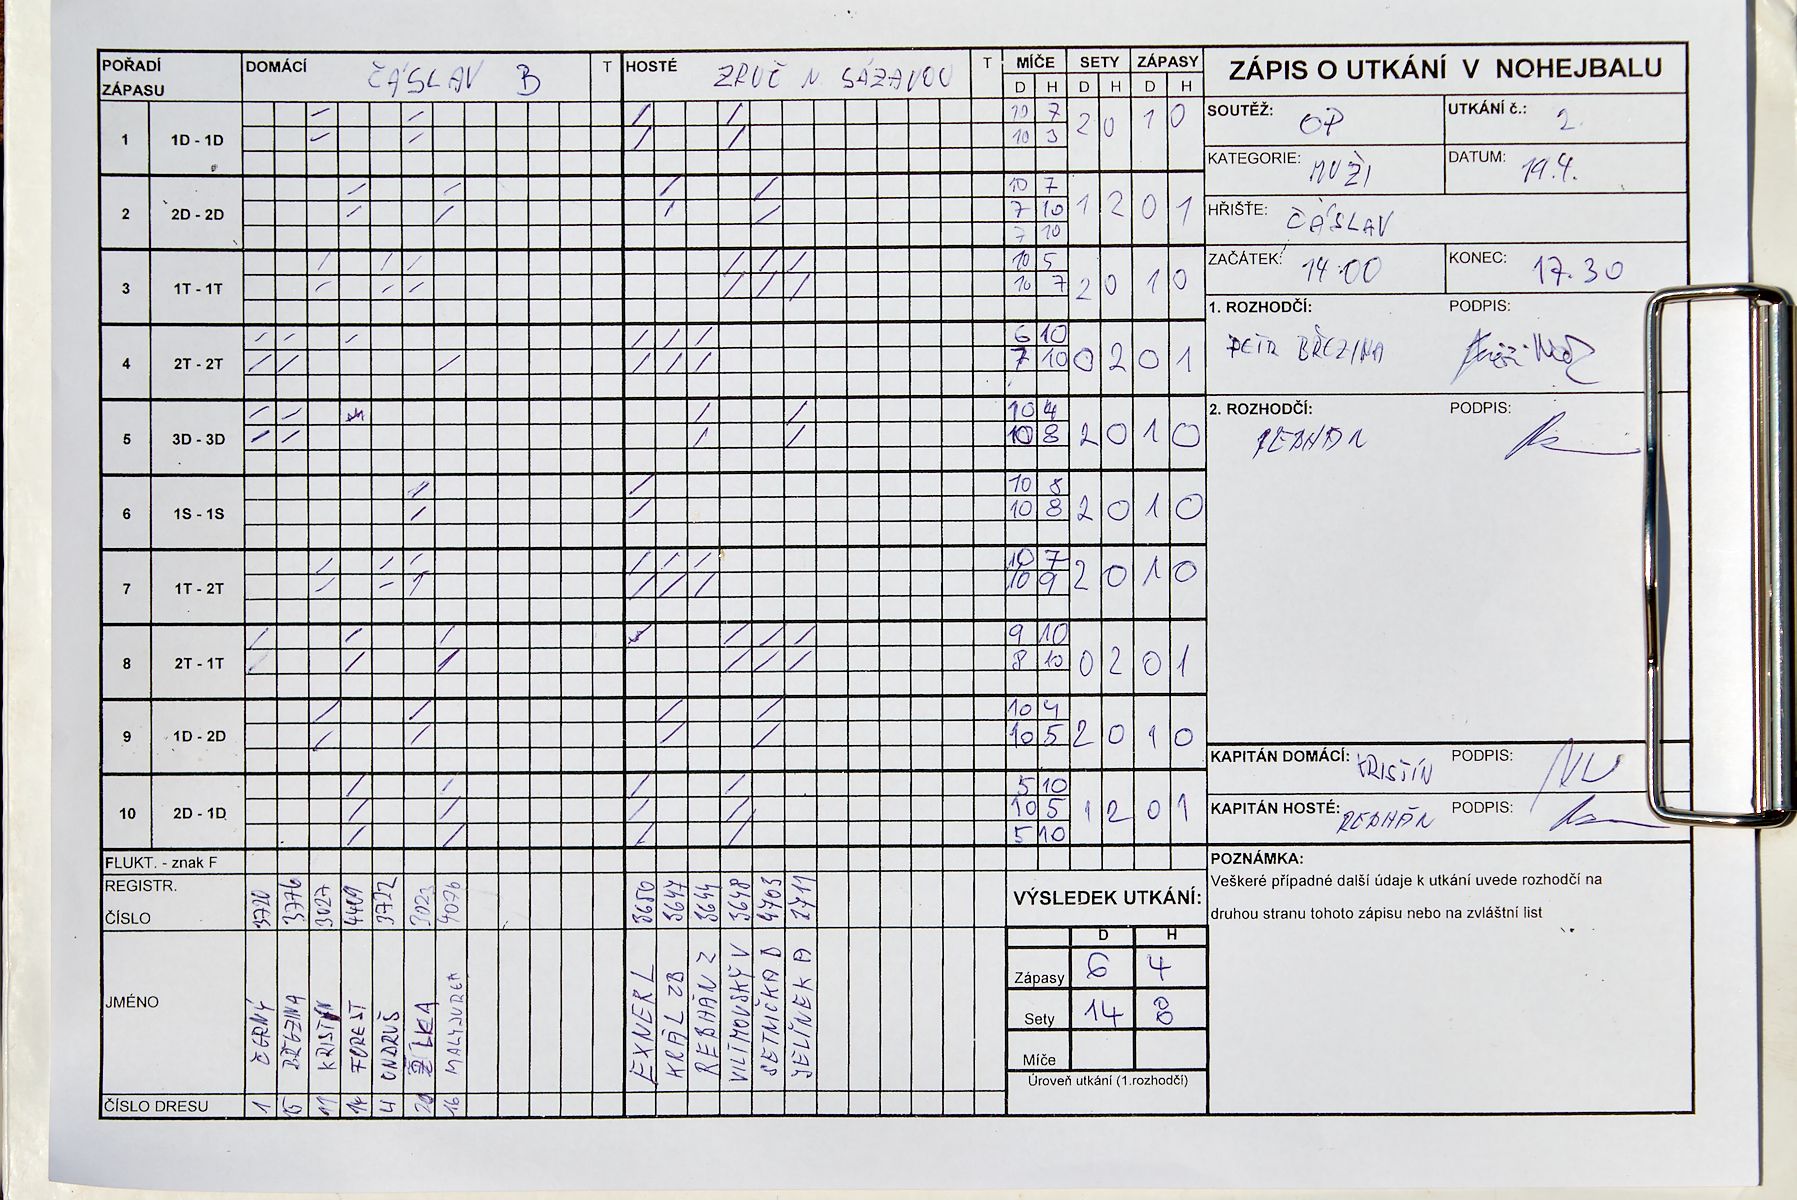 POŘADÍ ZÁPASU DOMÁCÍ ČÁSLAV B T HOSTÉ ZRUČ N. SÁZAVOU T MÍČE SETY ZÁPASY
D H D H D H
ZÁPIS O UTKÁNÍ V NOHEJBALU
SOUTĚŽ: OP UTKÁNÍ č.: 2.
KATEGORIE: MUŽI DATUM: 19.4.
HŘIŠTE: ČÁSLAV
ZAČÁTEK: 14.00 KONEC: 17.30
1. ROZHODČÍ: PODPIS:
PETR BŘEZINA
2. ROZHODČÍ: PODPIS:
REBHÁN
KAPITÁN DOMÁCÍ: KRISTÍN PODPIS:
KAPITÁN HOSTÉ: REBHÁN PODPIS:
POZNÁMKA:
Veškeré případné další údaje k utkání uvede rozhodčí na
druhou stranu tohoto zápisu nebo na zvláštní list
1 1D - 1D 10 7 2 0 1 0
10 3
2 2D - 2D 10 7 1 2 0 1
7 10
7 10
3 1T - 1T 10 5 2 0 1 0
10 7
4 2T - 2T 6 10 0 2 0 1
7 10
5 3D - 3D 10 4 2 0 1 0
10 8
6 1S - 1S 10 8 2 0 1 0
10 8
7 1T - 2T 10 7 2 0 1 0
10 9
8 2T - 1T 9 10 0 2 0 1
8 10
9 1D - 2D 10 4 2 0 1 0
10 5
10 2D - 1D 5 10 1 2 0 1
10 5
5 10
FLUKT. - znak F
REGISTR. ČÍSLO 3720 3776 3027 4409 3722 3023 4076 3650 3647 3644 3648 4703 2711
JMÉNO ČERNÝ BŘEZINA KRISTÍN FOREST ONDRUŠ ŽILKA MALY JUREK EXNER L KRÁL ZB REBHÁN Z VILÍMOVSKÝ V SETNIČKA D JELÍNEK A
ČÍSLO DRESU 1 15 11 14 4 20 16
VÝSLEDEK UTKÁNÍ:
D H
Zápasy 6 4
Sety 14 8
Míče
Úroveň utkání (1.rozhodčí)